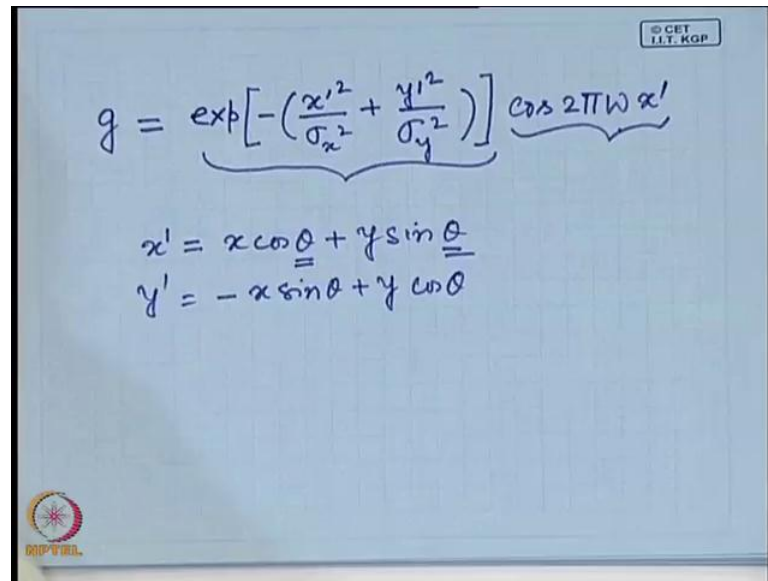 © CET
I.I.T. KGP
g = exp[-(x'²/σₓ² + y'²/σ_y²)] cos 2πW x'
x' = x cos θ + y sin θ
y' = - x sin θ + y cos θ
NPTEL